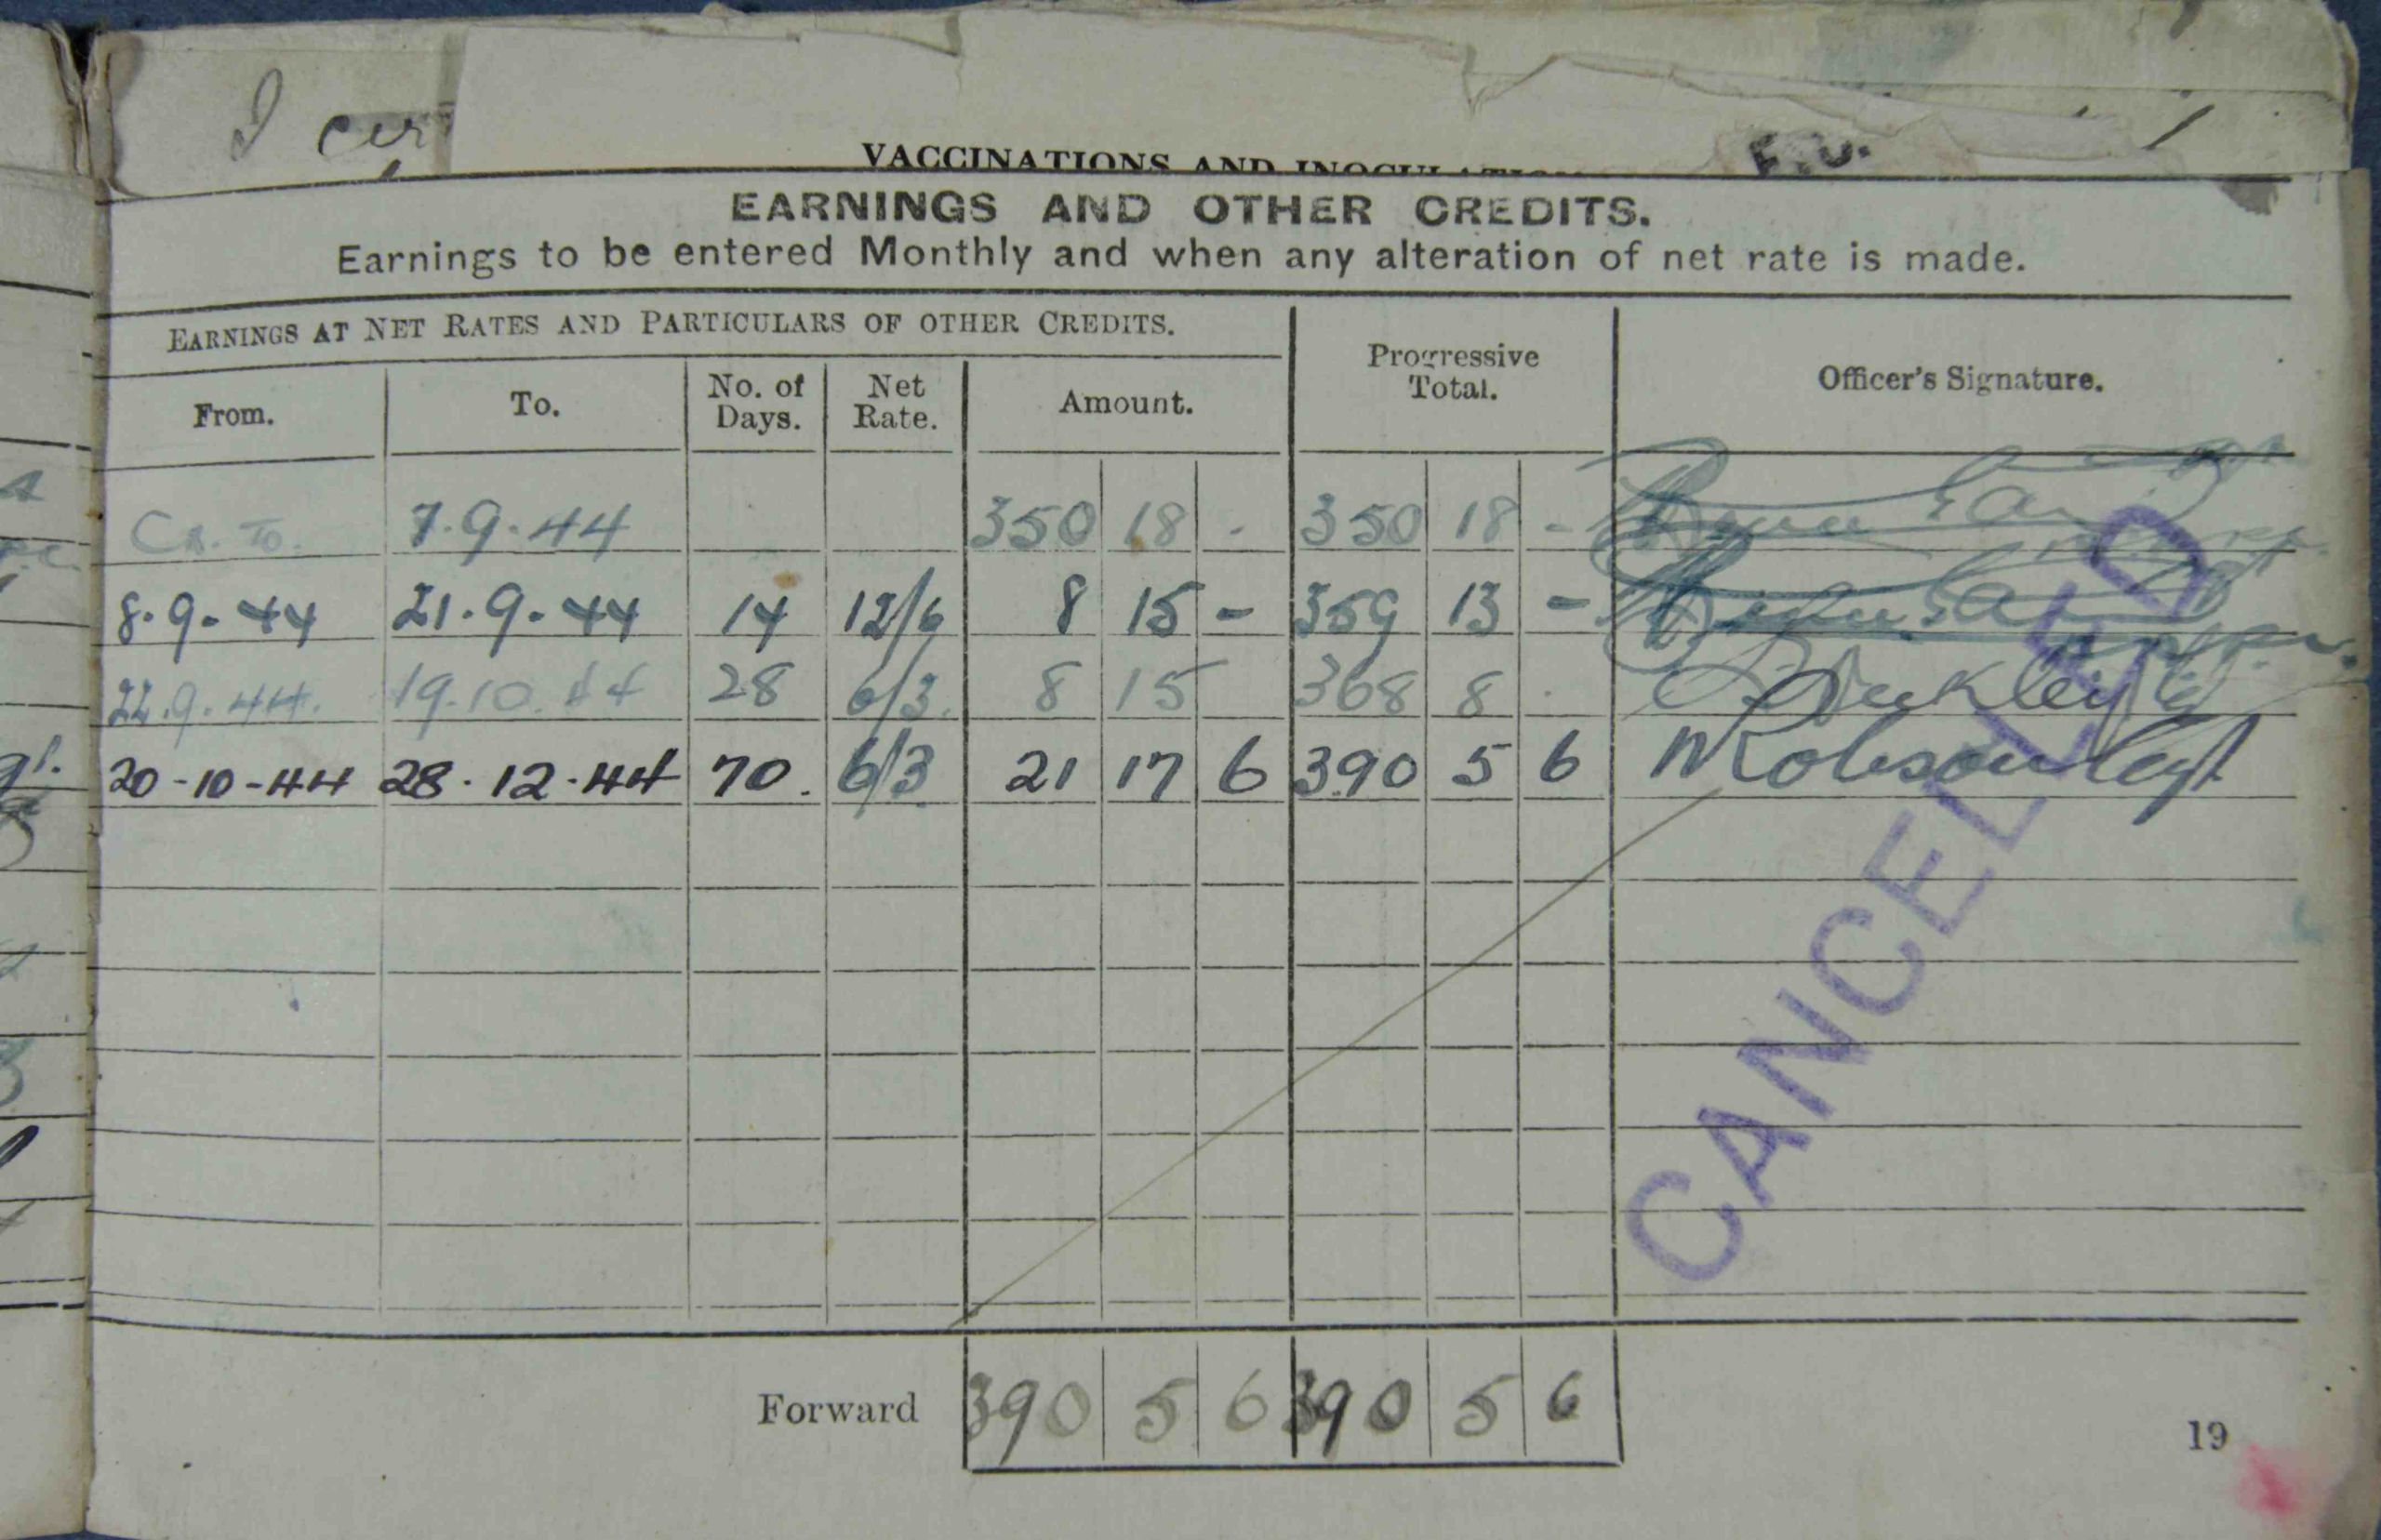 I cer
VACCINATIONS AND INOCULATIO
F.U.
EARNINGS AND OTHER CREDITS.
Earnings to be entered Monthly and when any alteration of net rate is made.
EARNINGS AT NET RATES AND PARTICULARS OF OTHER CREDITS.
Progressive Total.
Officer's Signature.
From. To. No. of Days. Net Rate. Amount.
CR. To. 7.9.44 350 18 - 350 18 -
8.9.44 21.9.44 14 12/6 8 15 - 359 13 -
22.9.44. 19.10.44 28 6/3. 8 15 368 8 .
20-10-44 28.12.44 70. 6/3 21 17 6 390 5 6 Robson Capt
CANCELLED
Forward 390 5 6 390 5 6
19